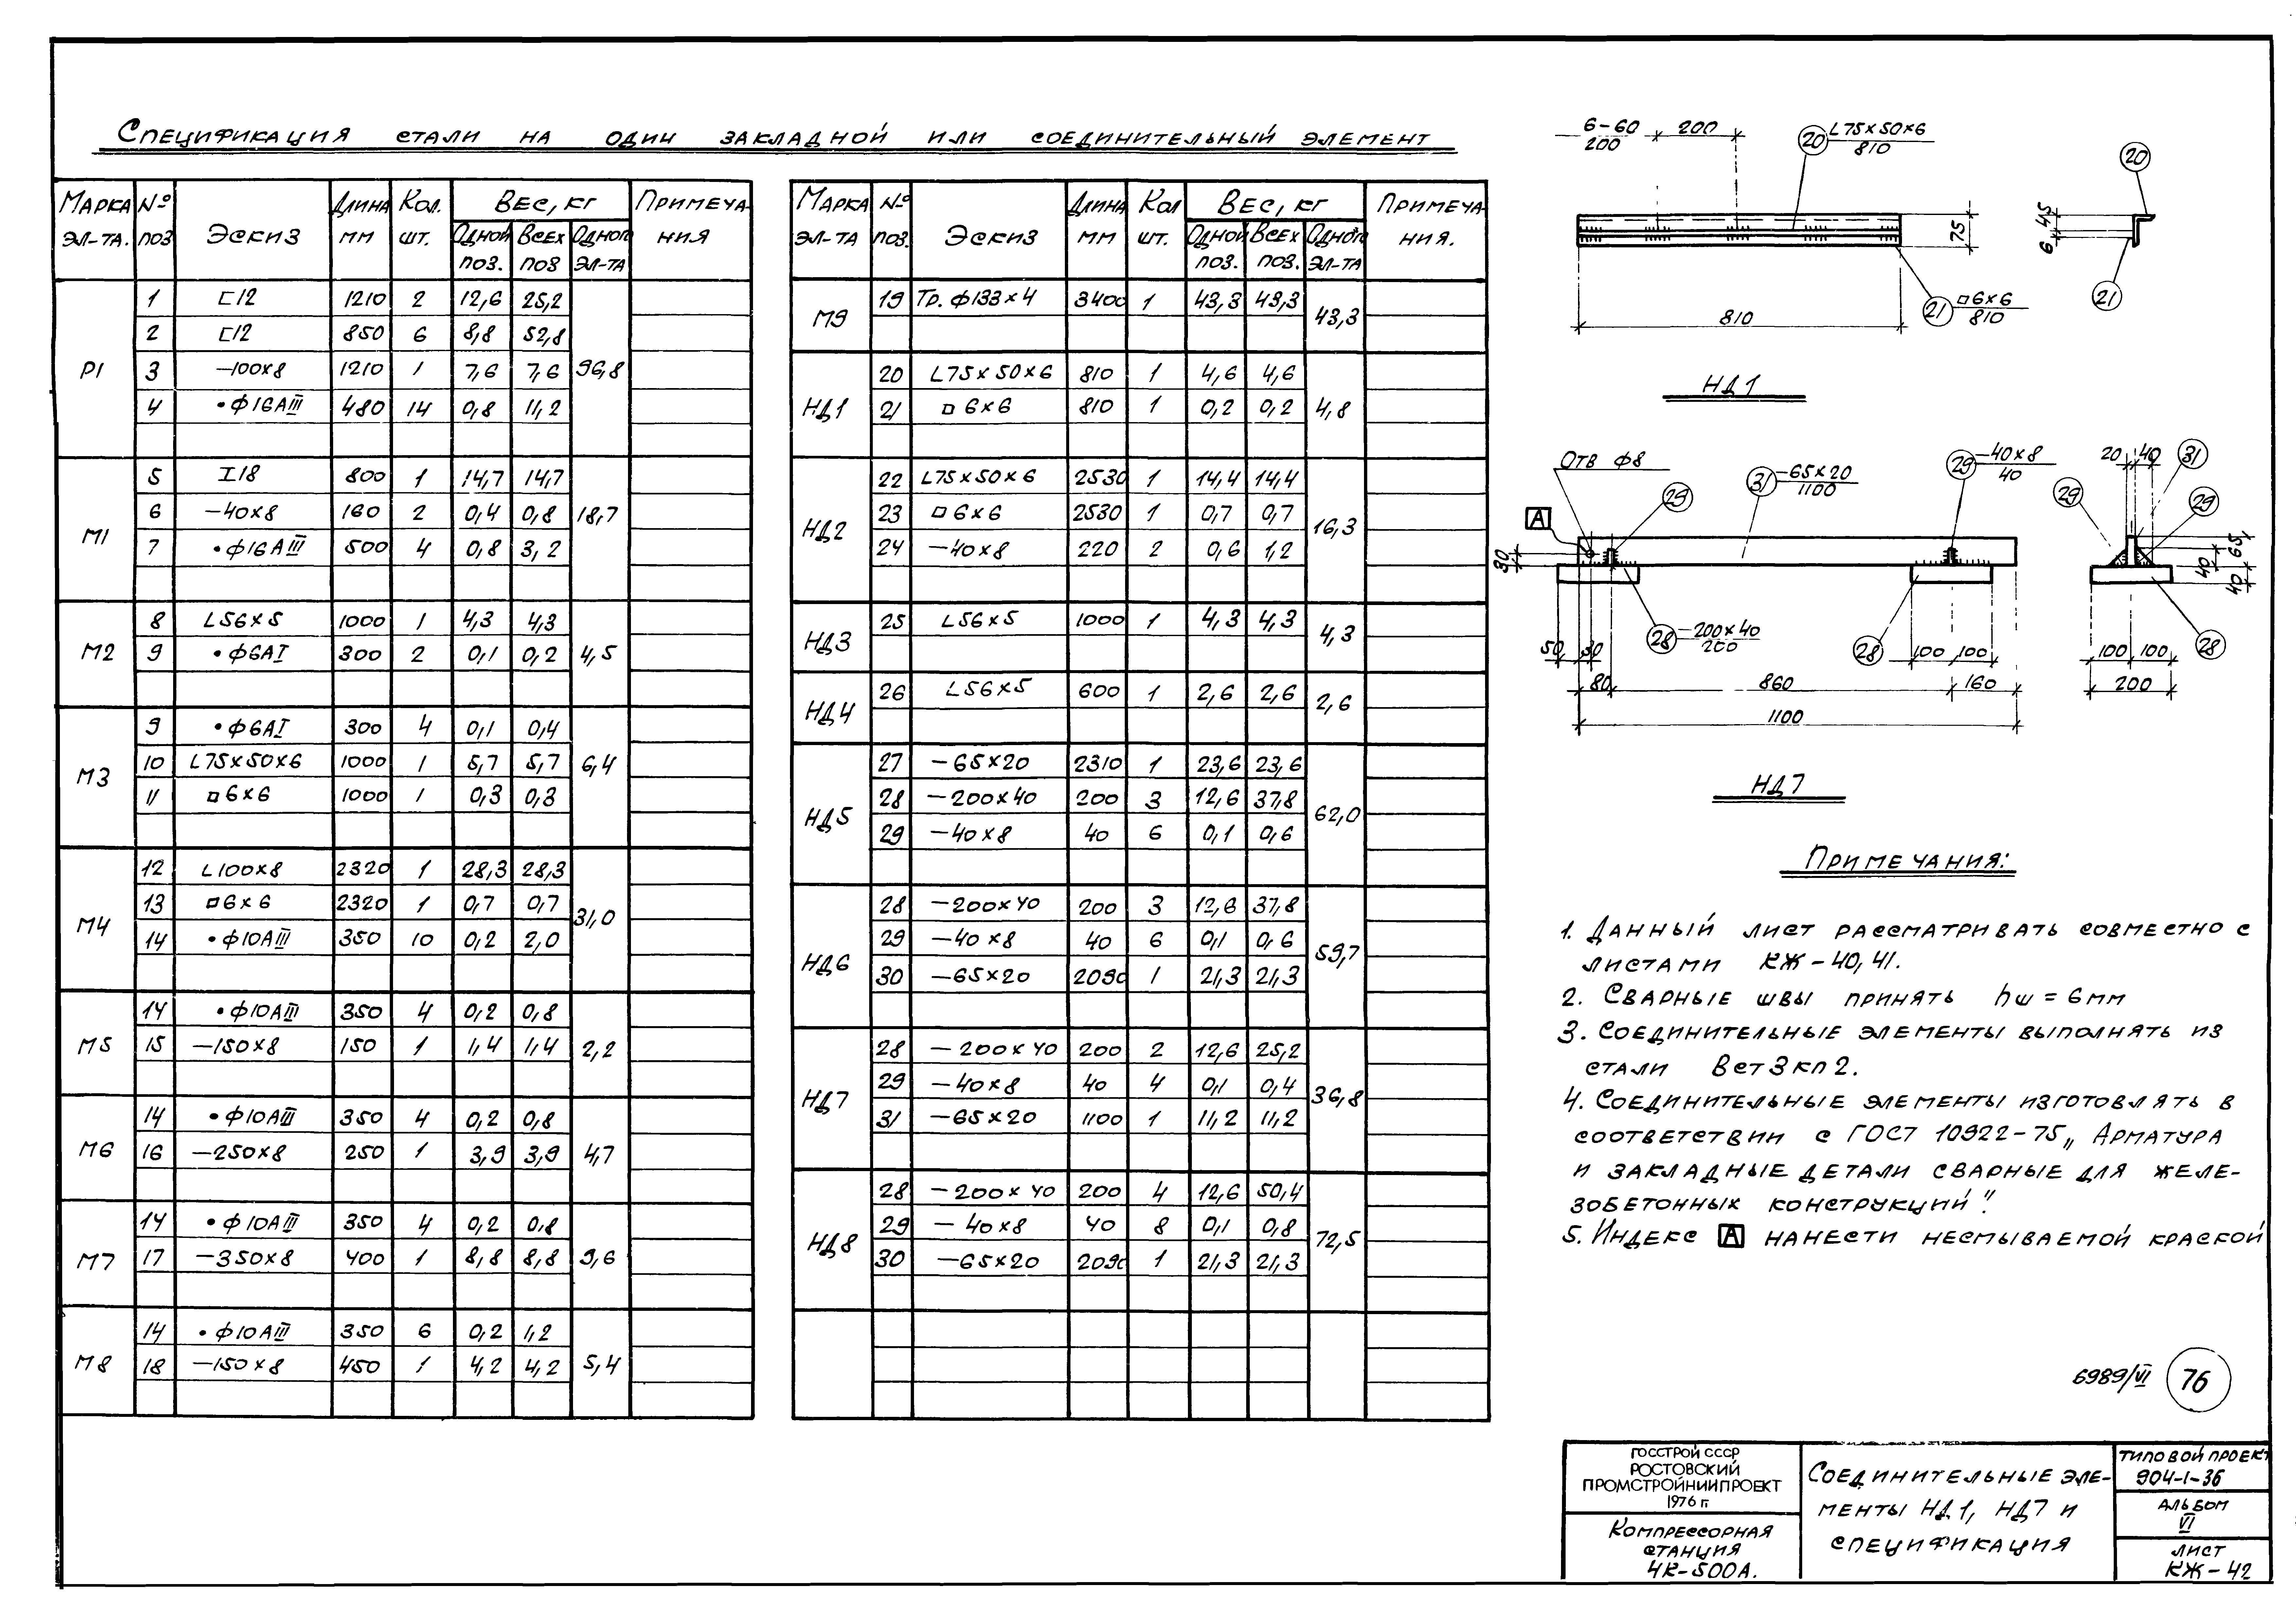 Спецификация стали на один закладной или соединительный элемент
Марка эл-та. | № поз | Эскиз | Длина мм | Кол. шт. | Вес, кг | Примечания
Одной поз. | Всех поз | Одного эл-та
Р1
1 | ⊏12 | 1210 | 2 | 12,6 | 25,2
2 | ⊏12 | 850 | 6 | 8,8 | 52,8
3 | —100×8 | 1210 | 1 | 7,6 | 7,6 | 96,8
4 | •ф16АIII | 480 | 14 | 0,8 | 11,2
М1
5 | I18 | 800 | 1 | 14,7 | 14,7
6 | —40×8 | 160 | 2 | 0,4 | 0,8 | 18,7
7 | •ф16АIII | 500 | 4 | 0,8 | 3,2
М2
8 | L56×5 | 1000 | 1 | 4,3 | 4,3
9 | •ф6АI | 300 | 2 | 0,1 | 0,2 | 4,5
М3
9 | •ф6АI | 300 | 4 | 0,1 | 0,4
10 | L75×50×6 | 1000 | 1 | 5,7 | 5,7 | 6,4
11 | □6×6 | 1000 | 1 | 0,3 | 0,3
М4
12 | L100×8 | 2320 | 1 | 28,3 | 28,3
13 | □6×6 | 2320 | 1 | 0,7 | 0,7 | 31,0
14 | •ф10АIII | 350 | 10 | 0,2 | 2,0
М5
14 | •ф10АIII | 350 | 4 | 0,2 | 0,8
15 | —150×8 | 150 | 1 | 1,4 | 1,4 | 2,2
М6
14 | •ф10АIII | 350 | 4 | 0,2 | 0,8
16 | —250×8 | 250 | 1 | 3,9 | 3,9 | 4,7
М7
14 | •ф10АIII | 350 | 4 | 0,2 | 0,8
17 | —350×8 | 400 | 1 | 8,8 | 8,8 | 9,6
М8
14 | •ф10АIII | 350 | 6 | 0,2 | 1,2
18 | —150×8 | 450 | 1 | 4,2 | 4,2 | 5,4
Марка эл-та | № поз. | Эскиз | Длина мм | Кол шт. | Вес, кг | Примечания.
Одной поз. | Всех поз. | Одного эл-та
М9
19 | Тр. ф133×4 | 3400 | 1 | 43,3 | 43,3 | 43,3
НД1
20 | L75×50×6 | 810 | 1 | 4,6 | 4,6
21 | □6×6 | 810 | 1 | 0,2 | 0,2 | 4,8
НД2
22 | L75×50×6 | 2530 | 1 | 14,4 | 14,4
23 | □6×6 | 2530 | 1 | 0,7 | 0,7 | 16,3
24 | —40×8 | 220 | 2 | 0,6 | 1,2
НД3
25 | L56×5 | 1000 | 1 | 4,3 | 4,3 | 4,3
НД4
26 | L56×5 | 600 | 1 | 2,6 | 2,6 | 2,6
НД5
27 | —65×20 | 2310 | 1 | 23,6 | 23,6
28 | —200×40 | 200 | 3 | 12,6 | 37,8 | 62,0
29 | —40×8 | 40 | 6 | 0,1 | 0,6
НД6
28 | —200×40 | 200 | 3 | 12,6 | 37,8
29 | —40×8 | 40 | 6 | 0,1 | 0,6 | 59,7
30 | —65×20 | 2090 | 1 | 21,3 | 21,3
НД7
28 | —200×40 | 200 | 2 | 12,6 | 25,2
29 | —40×8 | 40 | 4 | 0,1 | 0,4 | 36,8
31 | —65×20 | 1100 | 1 | 11,2 | 11,2
НД8
28 | —200×40 | 200 | 4 | 12,6 | 50,4
29 | —40×8 | 40 | 8 | 0,1 | 0,8 | 72,5
30 | —65×20 | 2090 | 1 | 21,3 | 21,3
6-60 200
200
20 L75×50×6 810
20
45
75
6
21 □6×6 810
21
810
НД1
Отв ф8
29
31 —65×20 1100
29 —40×8 40
20 40
31
29
29
А
30
65
40
40
28 —200×40 200
28
28
50 30
100 100
100 100
80
860
160
200
1100
НД7
Примечания:
1. Данный лист рассматривать совместно с
листами КЖ-40, 41.
2. Сварные швы принять hш = 6мм
3. Соединительные элементы выполнять из
стали Вст3кп2.
4. Соединительные элементы изготовлять в
соответствии с ГОСТ 10922-75 „Арматура
и закладные детали сварные для желе-
зобетонных конструкций".
5. Индекс А нанести несмываемой краской
6989/VI
76
ГОССТРОЙ СССР
РОСТОВСКИЙ
ПРОМСТРОЙНИИПРОЕКТ
1976 г.
Компрессорная
станция
4К-500А.
Соединительные эле-
менты НД1, НД7 и
спецификация
Типовой проект
904-1-36
Альбом
VI
Лист
КЖ-42